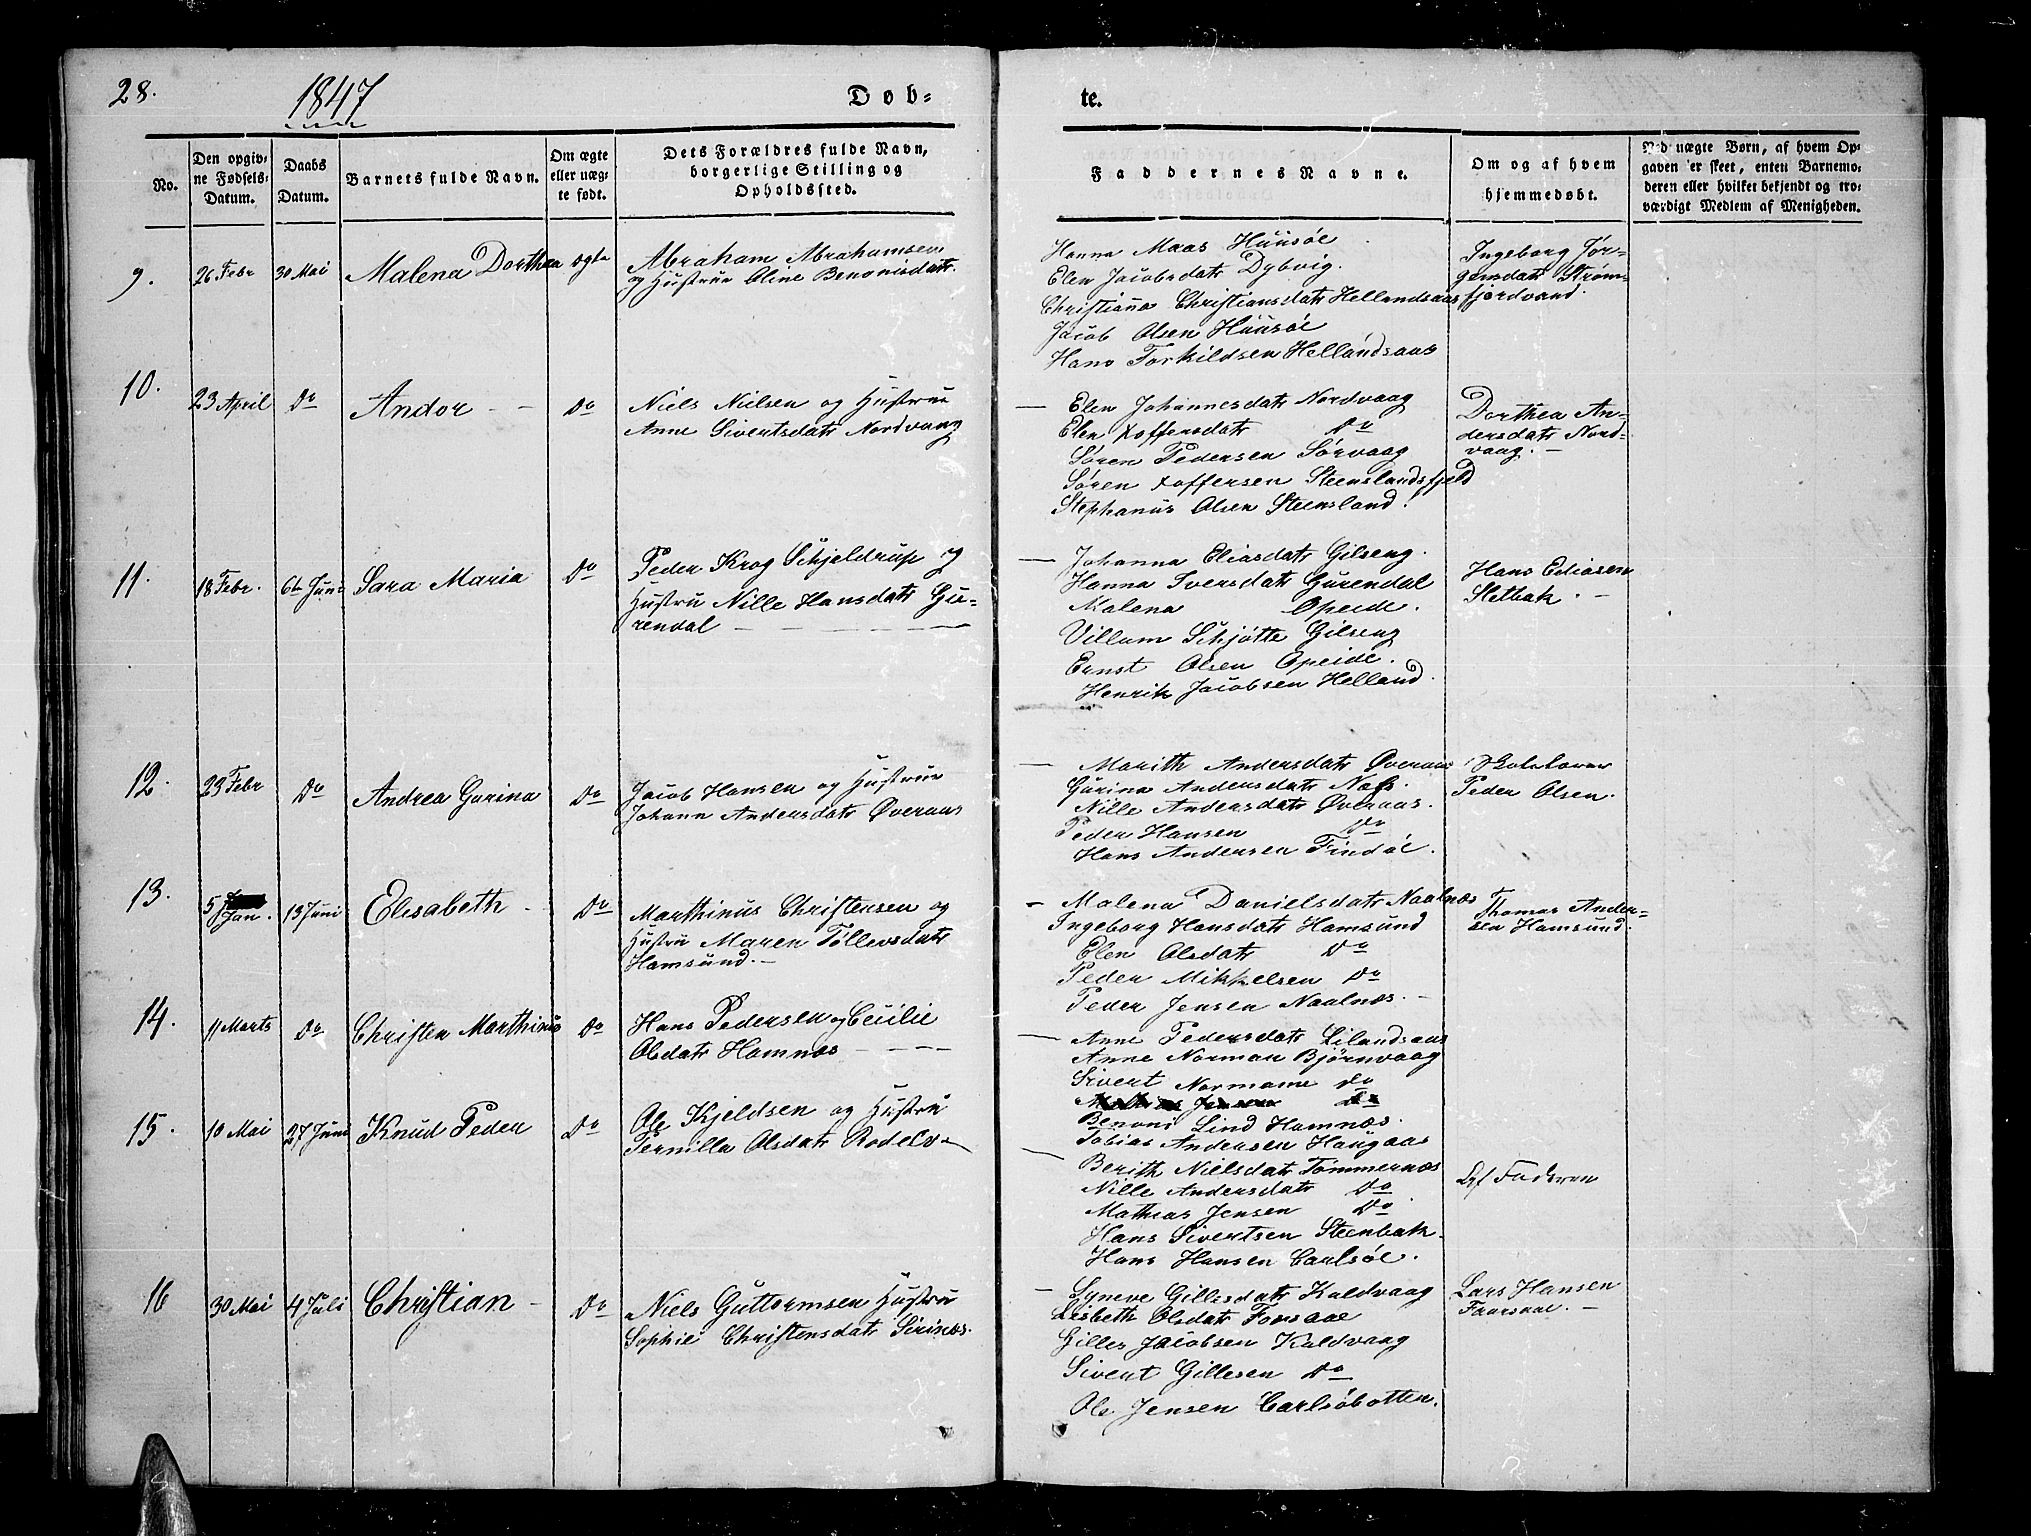 28.
1847
Døb-
te.
No.
Den opgiv-
ne Fødsels-
Datum.
Daabs
Datum.
Barnets fulde Navn.
Om ægte
eller uæg-
te født.
Dets Forældres fulde Navn,
borgerlige Stilling og
Opholdssted.
Faddernes Navne.
Om og af hvem
hjemmedøbt.
Ved uægte Børn, af hvem Op-
gaven er skeet, enten Barnemo-
deren eller hvilket bekjendt og tro-
værdigt Medlem af Menigheden.
9.
26 Febr
30 Mai
Malena Dorthea
ægte
Abraham Abrahamsen
og Hustrue Oline Benonisdatr.
Hanna Maas Huusöe
Elen Jacobsdatr Dybvig.
Christiana Christiansdatr Hellandsaas
Jacob Olsen Huusöe
Hans Torkildsen Hellandsaas
Ingeborg Jør-
gensdatr Strøm-
fjordvand.
10.
23 April
Do
Andor -
Do
Niels Nielsen og Hustrue
Anne Sivertsdatr Nordvaag
— Elen Johannesdatr Nordvaag
Elen Xoffersdatr Do
Søren Pedersen Sørvaag
Søren Xoffersen Steenslandsfjeld
Stephanus Olsen Steensland.
Dorthea An-
dersdatr Nord-
vaag. —
11.
18 Febr.
6te Juni
Sara Maria
Do
Peder Krog Schjeldrup og
Hustru Nille Hansdatr Gu-
rendal
— Johanna Eliasdatr Gilseng.
Hanna Iversdatr Gurendal
Malena Opeide.
Villum Schjøtte Gilseng
Ernst Olsen Opeide.
Henrik Jacobsen Helland.
Hans Eliasen
Sletbak. -
12.
23 Febr
Do
Andrea Gurina
Do
Jacob Hansen og Hustrue
Johann Andersdatr Øveraas
— Marith Andersdatr Øveraas
Gurina Andersdatr Næs.
Nille Andersdatr Øveraas.
Peder Hansen Do
Hans Andersen Findöe.
Skolelærer
Peder Olsen.
13.
5 Jan.
13 Juni
Elisabeth
Do
Marthinus Christensen og
Hustru Maren Tøllevsdatr
Hamsund. -
- Malena Danielsdatr Naalnæs
Ingeborg Hansdatr Hamsund
Elen Olsdatr Do
Peder Mikkelsen Do
Peder Jensen Naalnæs. -
Thomas Ander-
sen Hamsund.
14.
11 Marts
Do
Christen Marthinus
Do
Hans Pedersen og Cecilie
Olsdatr Hamnæs
— Anne Pedersdatr Lilandsaas
Anne Norman Bjørnvaag
Sivert Normann Do
Benoni Lind Hamnæs.
Tobias Andersen Haugaas
15.
10 Mai
27 Juni
Knud Peder
Do
Ole Kjeldsen og Hustru
Pernilla Olsdatr Rodelv
— Berith Nielsdatr Tømmernæs
Nille Andersdatr Do
Mathias Jensen Do
Hans Sivertsen Steenbak.
Hans Hansen Carlsöe.
Faderen
16
30 Mai
4 Juli
Christian -
Do
Niels Guttormsen Hustru
Sophie Christensdatr Sirinæs.
— Syneve Gillesdatr Kaldvaag
Lisbeth Olsdatr Forsaae
Gilles Jacobsen Kaldvaag
Sivert Gillesen Do
Ole Jensen Carlsöbotten.
Lars Hansen
Faarsaae. -